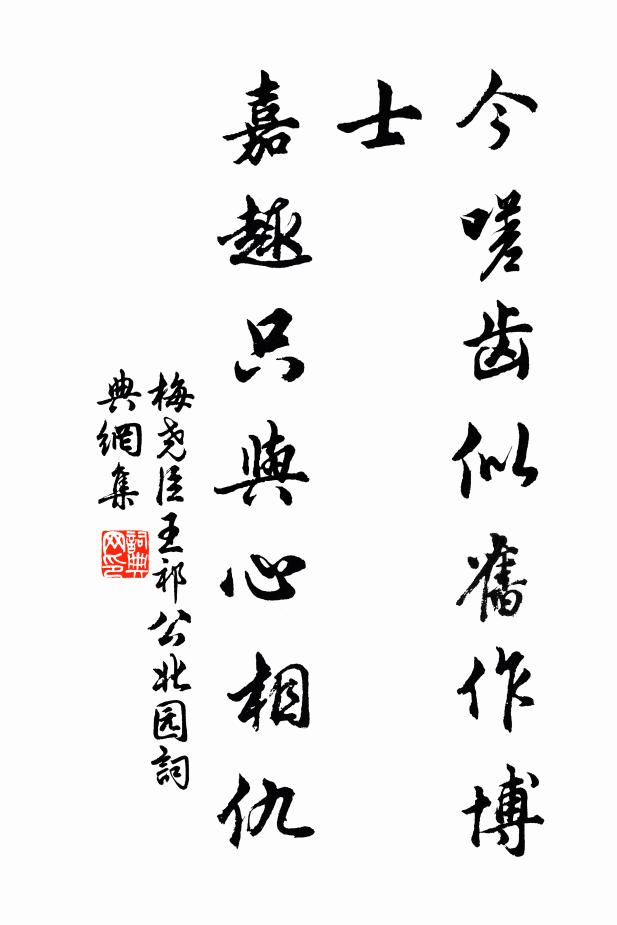 今嗟齿似舊作博
士
嘉趣只與心相仇
梅尧臣王祁公北园詞
典網集
詞典
网印